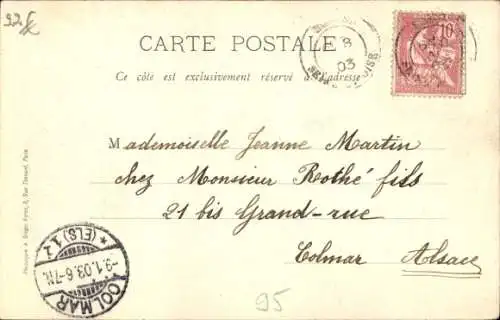 CARTE POSTALE
Ce côté est exclusivement réservé à l'adresse
Mademoiselle Jeanne Martin
chez Monsieur Rothé fils
21 bis Grand-rue
Colmar Alsace
COLMAR
-9.1.03.6-7N.
* (ELS) 1 z
8
03
10
95